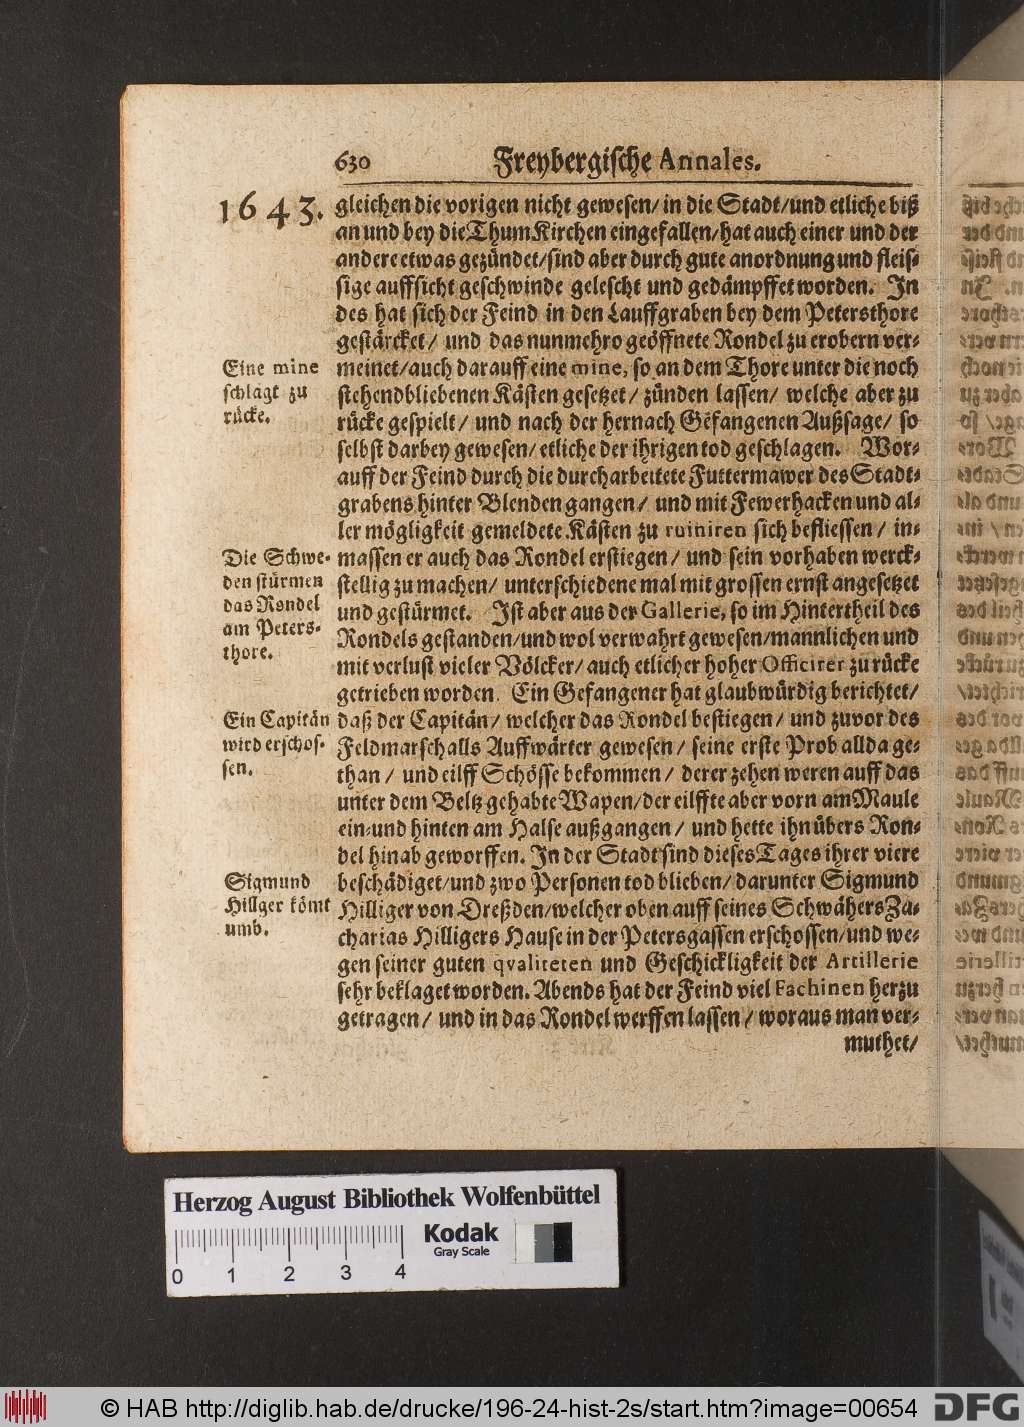 630 Freybergische Annales.
1643.
gleichen die vorigen nicht gewesen/ in die Stadt/und etliche biß
an und bey die Thum Kirchen eingefallen/hat auch einer und der
andere etwas gezündet/sind aber durch gute anordnung und fleis-
sige auffsicht geschwinde gelescht und gedämpffet worden. In
des hat sich der Feind in den Lauffgraben bey dem Petersthore
gestärcket/ und das nunmehro geöffnete Rondel zu erobern ver-
meinet/auch darauff eine mine, so an dem Thore unter die noch
stehendbliebenen Kästen gesetzet/ zünden lassen/ welche aber zu
rücke gespielt/ und nach der hernach Gefangenen Außsage/ so
selbst darbey gewesen/etliche der ihrigen tod geschlagen. Wor-
auff der Feind durch die durcharbeitete Futtermawer des Stadt-
grabens hinter Blenden gangen/ und mit Fewerhacken und al-
ler mögligkeit gemeldete Kästen zu ruiniren sich befliessen/ in-
massen er auch das Rondel erstiegen/ und sein vorhaben werck-
stellig zu machen/ unterschiedene mal mit grossen ernst angesetzet
und gestürmet. Ist aber aus der Gallerie, so im Hintertheil des
Rondels gestanden/und wol verwahrt gewesen/mannlichen und
mit verlust vieler Völcker/ auch etlicher hoher Officirer zu rücke
getrieben worden. Ein Gefangener hat glaubwürdig berichtet/
daß der Capitän/ welcher das Rondel bestiegen/ und zuvor des
Feldmarschalls Auffwärter gewesen/ seine erste Prob allda ge-
than/ und eilff Schösse bekommen/ derer zehen weren auff das
unter dem Beltz gehabte Wapen/der eilffte aber vorn am Maule
ein-und hinten am Halse außgangen/ und hette ihn übers Ron-
del hinab geworffen. In der Stadt sind dieses Tages ihrer viere
beschädiget/und zwo Personen tod blieben/ darunter Sigmund
Hilliger von Dreßden/welcher oben auff seines Schwähers Za-
charias Hilligers Hause in der Petersgassen erschossen/und we-
gen seiner guten qvaliteten und Geschickligkeit der Artillerie
sehr beklaget worden. Abends hat der Feind viel Fachinen herzu
getragen/ und in das Rondel werffen lassen/ woraus man ver-
muthet/
Eine mine
schlägt zu
rücke.
Die Schwe-
den stürmen
das Rondel
am Peters-
thore.
Ein Capitän
wird erschos-
sen.
Sigmund
Hillger kömt
umb.
Herzog August Bibliothek Wolfenbüttel
Kodak
Gray Scale
0 1 2 3 4
© HAB http://diglib.hab.de/drucke/196-24-hist-2s/start.htm?image=00654
DFG